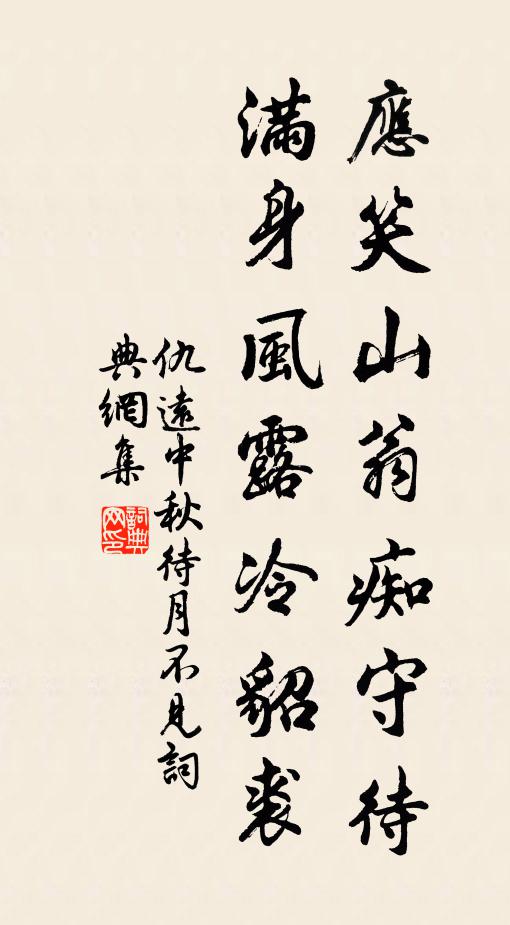 應笑山翁痴守待
滿身風露冷貂裘
仇遠中秋待月不見詞
典網集
詞典
网印